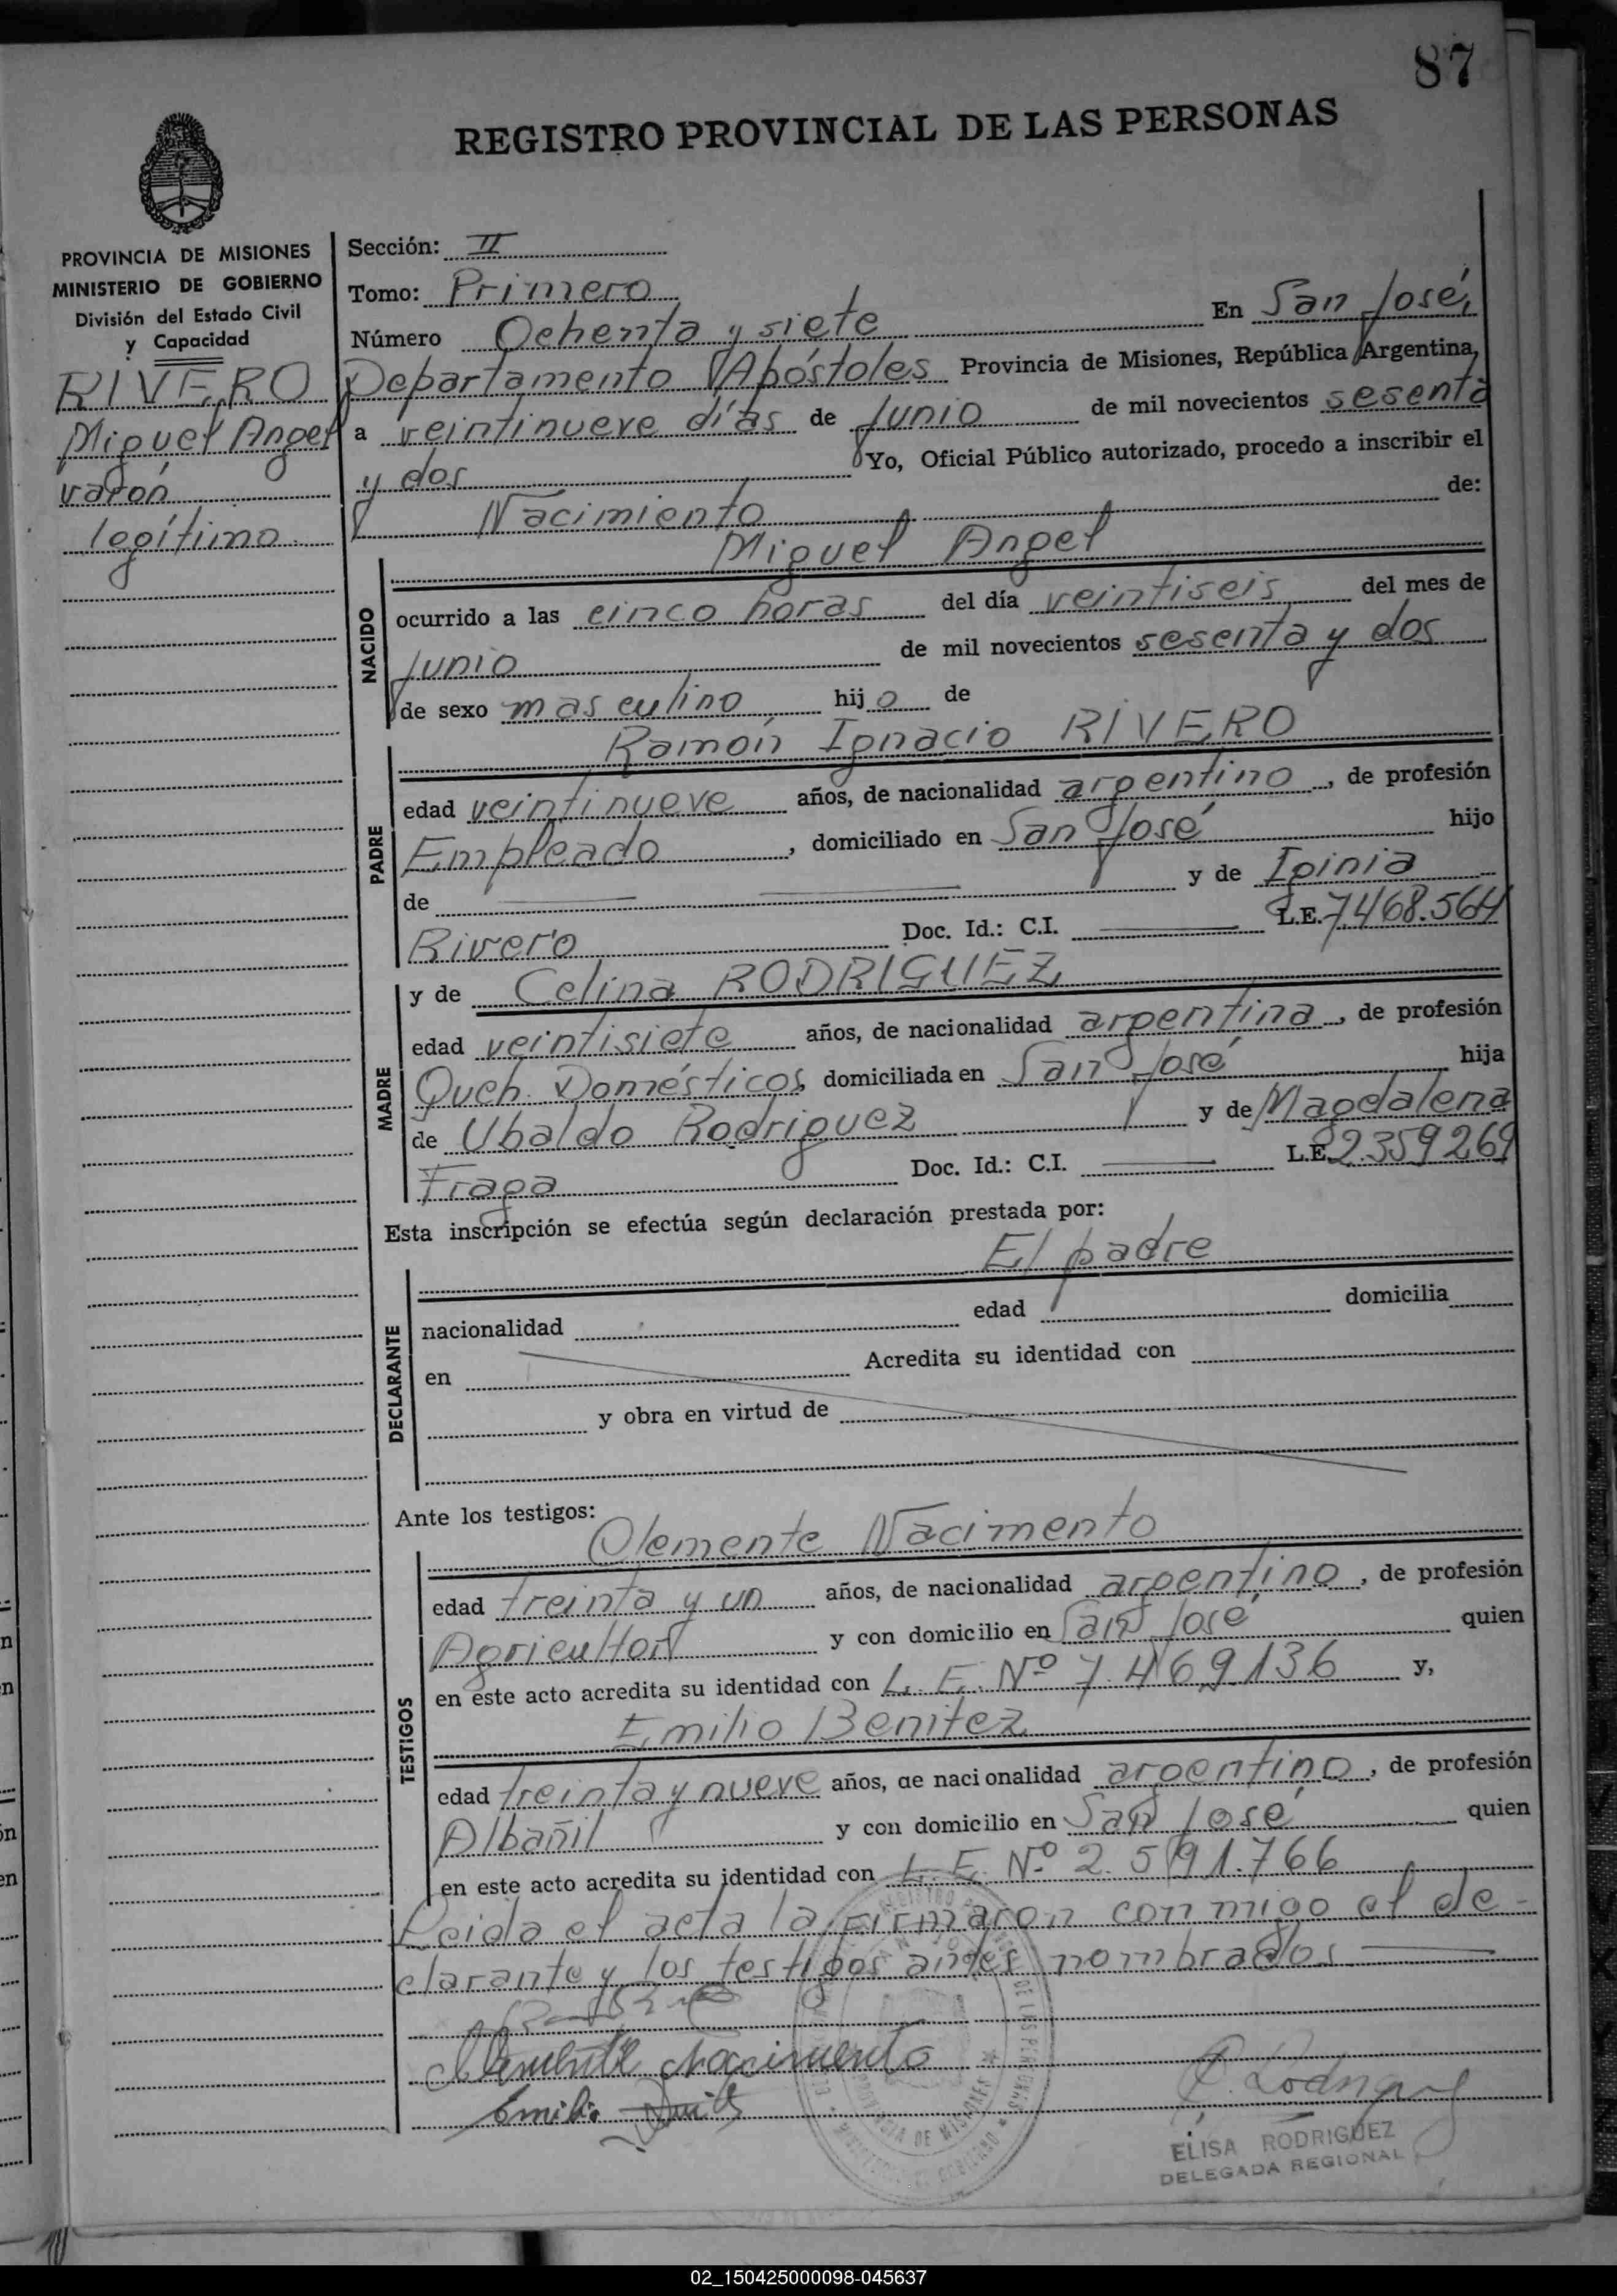 87
REGISTRO PROVINCIAL DE LAS PERSONAS
PROVINCIA DE MISIONES
MINISTERIO DE GOBIERNO
División del Estado Civil
y Capacidad
RIVERO
Miguel Angel
varón
legítimo
Sección: II
Tomo: Primero
Número Ochenta y siete En San José,
Departamento Apóstoles Provincia de Misiones, República Argentina,
a veintinueve días de Junio de mil novecientos sesenta
y dos Yo, Oficial Público autorizado, procedo a inscribir el
Nacimiento de:
Miguel Angel
NACIDO
ocurrido a las cinco horas del día veintiseis del mes de
Junio de mil novecientos sesenta y dos
de sexo masculino hijo de
Ramón Ignacio RIVERO
PADRE
edad veintinueve años, de nacionalidad argentino, de profesión
Empleado, domiciliado en San José hijo
de y de Iginia
Rivero Doc. Id.: C.I. L.E. 7.468.564
MADRE
y de Celina RODRIGUEZ
edad veintisiete años, de nacionalidad argentina, de profesión
Queh. Domésticos, domiciliada en San José hija
de Ubaldo Rodriguez y de Magdalena
Fraga Doc. Id.: C.I. L.E. 2.359269
Esta inscripción se efectúa según declaración prestada por:
El padre
DECLARANTE
nacionalidad edad domicilia
en Acredita su identidad con
y obra en virtud de
Ante los testigos:
Clemente Nacimento
TESTIGOS
edad treinta y un años, de nacionalidad argentino, de profesión
Agricultor y con domicilio en San José quien
en este acto acredita su identidad con L. E. Nº 7.469.136 y,
Emilio Benitez
edad treinta y nueve años, de nacionalidad argentino, de profesión
Albañil y con domicilio en San José quien
en este acto acredita su identidad con L. E. Nº 2.591.766
Leida el acta la firmaron conmigo el de-
clarante y los testigos antes nombrados
Clemente Nacimiento
Emilio
ELISA RODRIGUEZ
DELEGADA REGIONAL
02_150425000098-045637